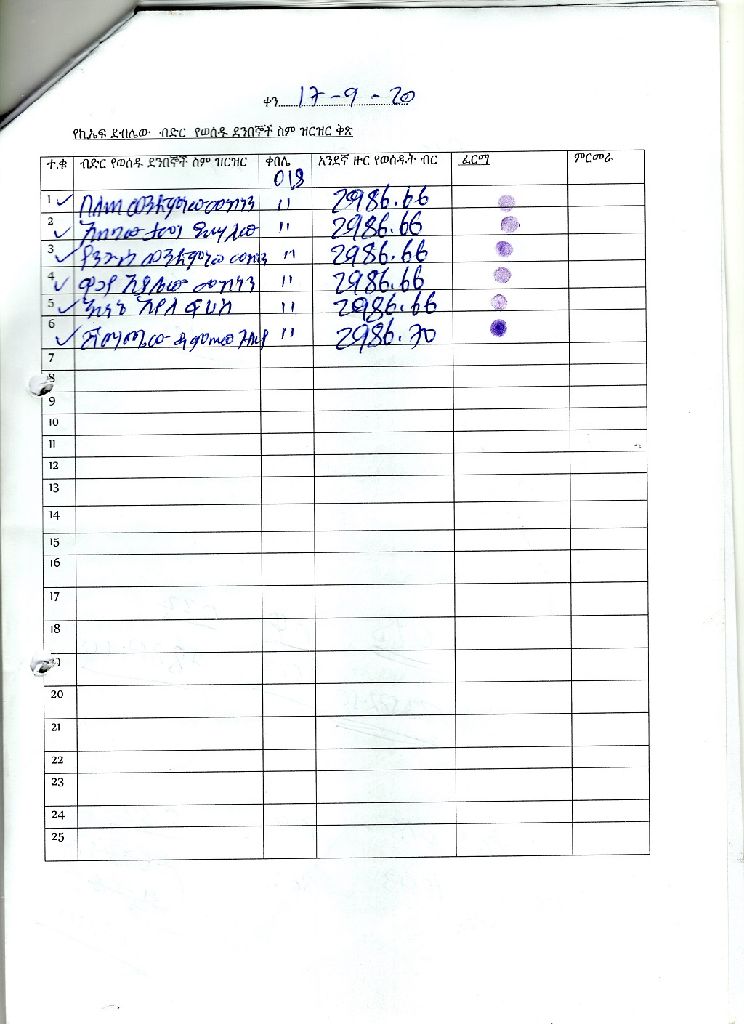 ቀን 17-9-20
የኪኤፍ ደብሊው ብድር የወሰዱ ደንበኞች ስም ዝርዝር ቅጽ
ተ.ቁ ብድር የወሰዱ ደንበኞች ስም ዝርዝር ቀበሌ አንደኛ ዙር የወሰዱት ብር ፊርማ ምርመራ
018
1 በለጠ ወንድምነው መኮንን " 2986.66
2 " 2986.66
3 ወንድምነው መኮንን " 2986.66
4 አያሌው መኮንን " 2986.66
5 " 2986.66
6 " 2986.70
7
8
9
10
11
12
13
14
15
16
17
18
20
21
22
23
24
25